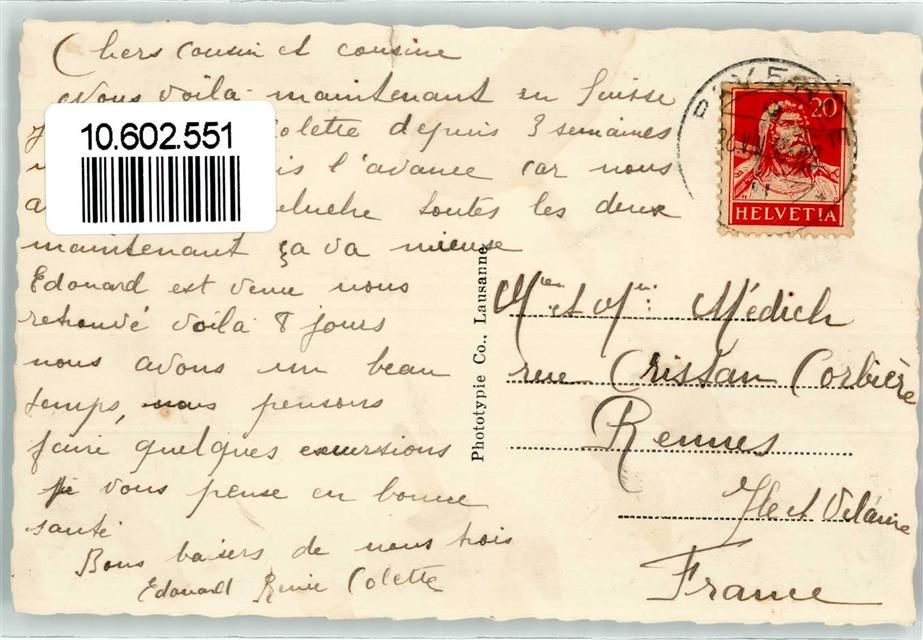 Chers cousin et cousine
Nous voilà maintenant en Suisse
Colette depuis 3 semaines
10.602.551
l'avance car nous
toutes les deux
maintenant ça va mieuse
Edouard est venu nous
retrouvé voilà 8 jours
nous avons un beau
temps, nous pensons
faire quelques excursions
je vous pense en bonne
santé
Bons baisers de nous trois
Edouard Renée Colette
Phototypie Co., Lausanne
20
HELVETIA
Médich
rue Crissan Corbière
Rennes
Ile et Vilaine
France